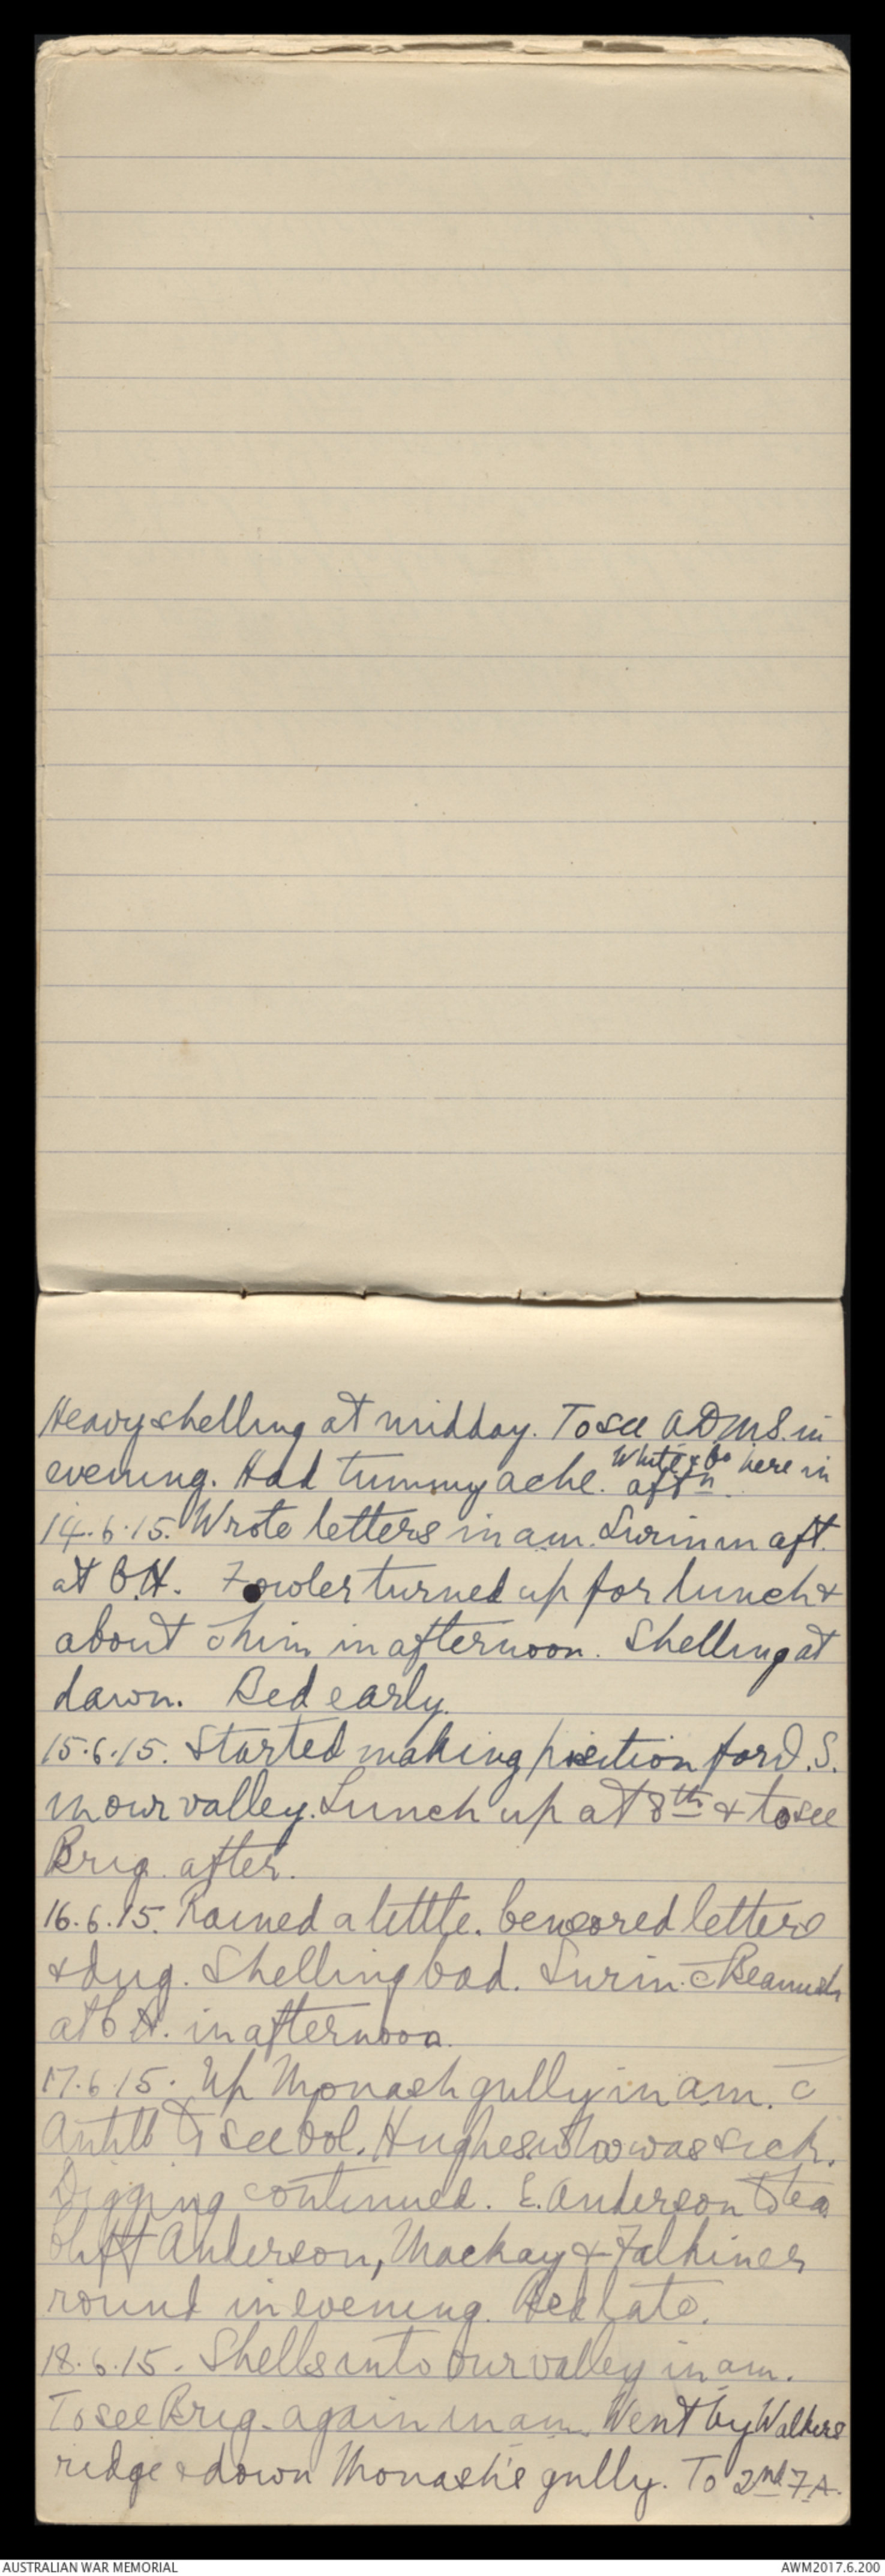 Heavy shelling at midday. To see ADMS. in
evening. Had tummy ache. White & Co here in
aftn.
14.6.15. Wrote letters in am. Swim in aft.
at B.H. Fowler turned up for lunch &
about c̄ him in afternoon. Shelling at
dawn. Bed early.
15.6.15. Started making position for D.S.
in our valley. Lunch up at 8th & to see
Brig. after.
16.6.15. Rained a little. Censored letters
& dug. Shelling bad. Swim c̄ Beamish
at B.H. in afternoon.
17.6.15. Up Monash gully in am. c̄
Antill to see Col. Hughes who was sick.
Digging continued. E. Anderson to tea
Anderson, Mackay & Falkiner
round in evening. Bed late.
18.6.15. Shells into our valley in am.
To see Brig. again in am. Went by Walkers
ridge & down Monash's gully. To 2nd F.A.
AUSTRALIAN WAR MEMORIAL
AWM2017.6.200